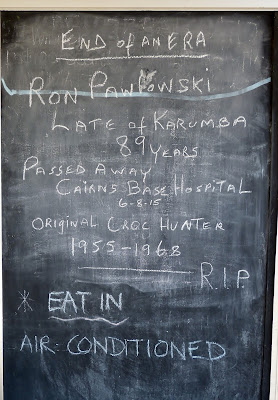 END of AN ERA
RON PAWLOWSKI
LATE of KARUMBA
89 YEARS
PASSED AWAY
CAIRNS BASE HOSPITAL
6-8-15
ORIGINAL CROC HUNTER
1955-1968
R.I.P.
* EAT IN
AIR. CONDITIONED